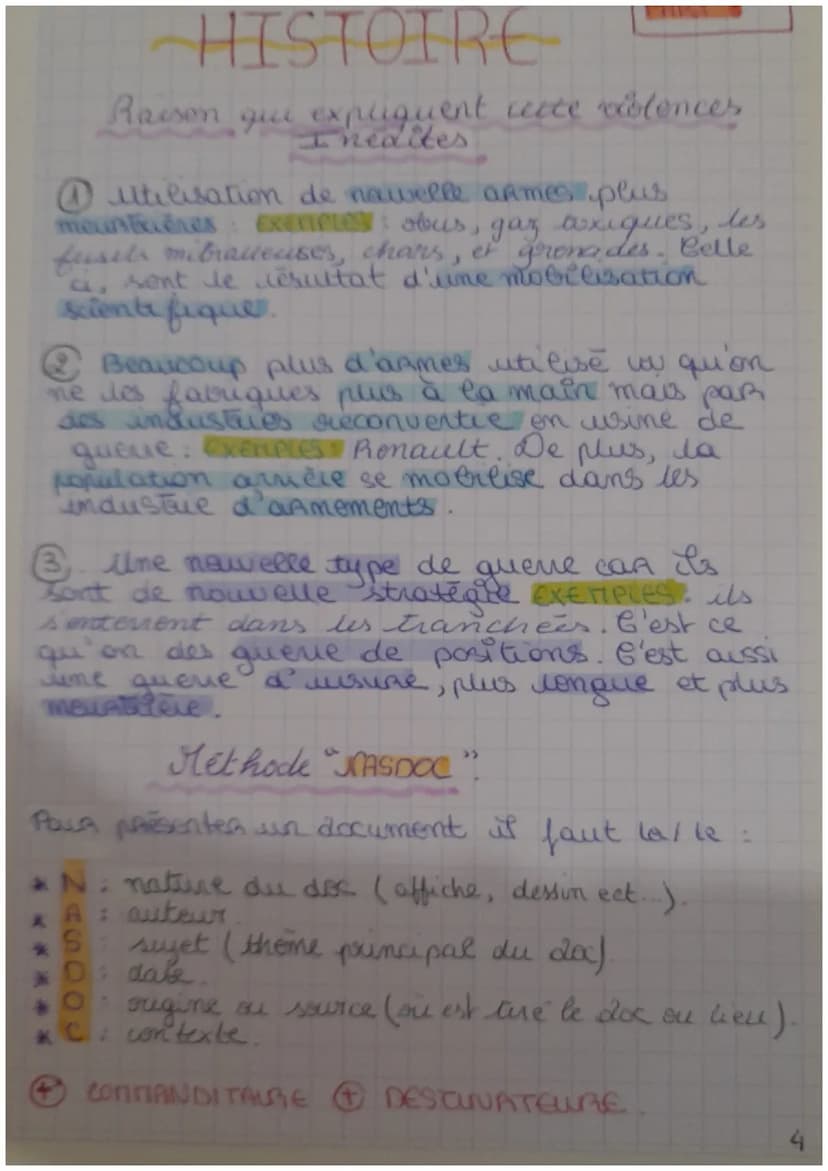 HISTOIRE
Raison qui expliquent cette violences
Inédites
① Utilisation de nouvelle armes plus
meurtrières : EXEMPLES : obus, gaz toxiques, les
fusils mitrailleuses, chars, et grenades. Celle
ci, sont le résultat d'une mobilisation
scientifique.
② Beaucoup plus d'armes utilisé vu qu'on
ne les fabriques plus à la main mais par
des industries reconvertie en usine de
guerre : EXEMPLES Renault. De plus, la
population arrière se mobilise dans les
industrie d'armements.
③. Une nouvelle type de guerre car ils
sont de nouvelle stratégie EXEMPLES : ils
s'enterrent dans les tranchées. C'est ce
qu'on des guerre de positions. C'est aussi
une guerre d'usure, plus longue et plus
meurtrière.
Méthode "NASDOC" :
Pour présenter un document il faut la/le :
* N : nature du doc (affiche, dessin ect...).
* A : auteur.
* S : sujet (thème principal du doc)
* D : date.
* O : origine ou source (où est tiré le doc ou lieu).
* C : contexte.
⊕ COMMANDITAIRE ⊕ DESTINATEURE.
4